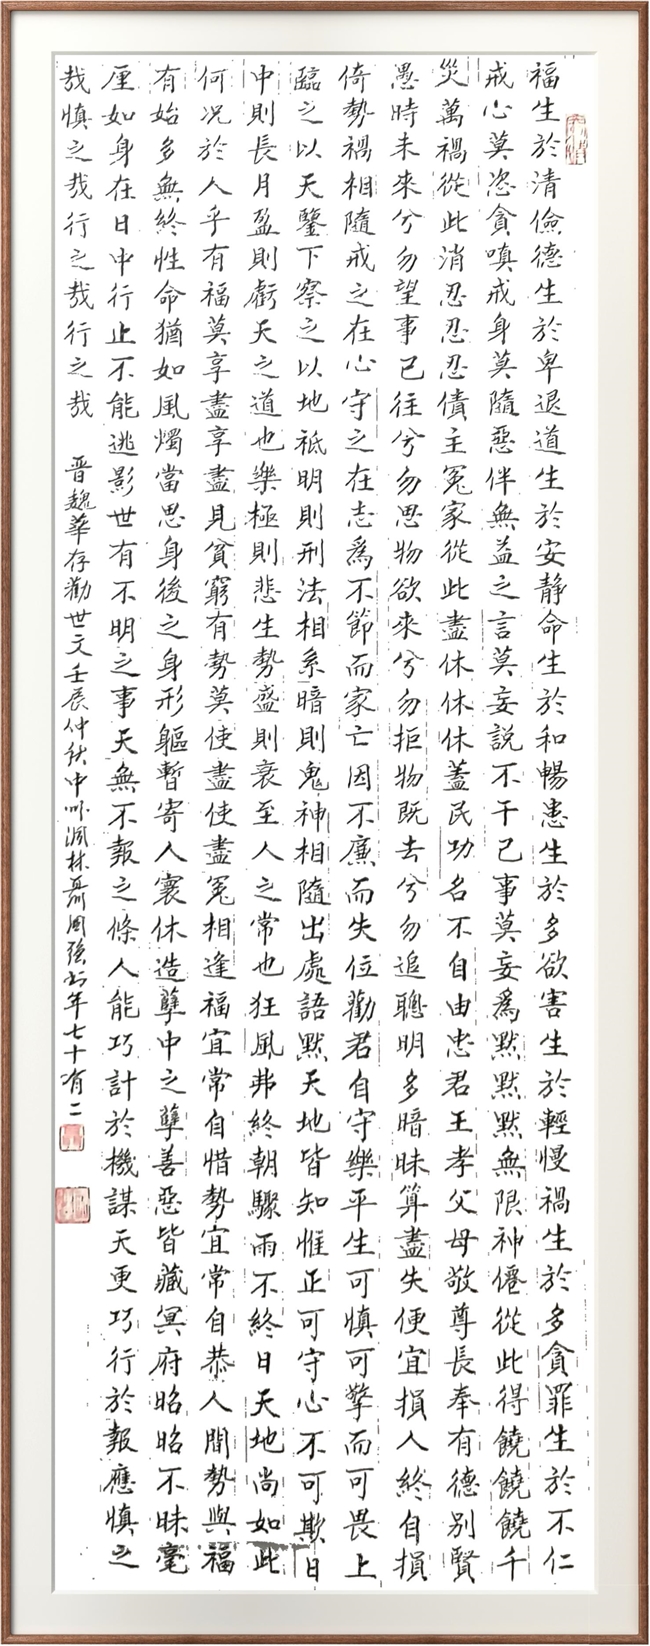 福生於清儉德生於卑退道生於安靜命生於和暢患生於多欲害生於輕慢禍生於多貪罪生於不仁
戒心莫恣貪嗔戒身莫隨惡伴無益之言莫妄說不干己事莫妄爲默默默無限神僊從此得饒饒饒千
災萬禍從此消忍忍忍債主冤家從此盡休休休蓋民功名不自由忠君王孝父母敬尊長奉有德別賢
愚時未來兮勿望事已往兮勿思物欲來兮勿拒物既去兮勿追聰明多暗昧算盡失便宜損人終自損
倚勢禍相隨戒之在心守之在志爲不節而家亡因不廉而失位勸君自守樂平生可慎可擎而可畏上
臨之以天鑒下察之以地祗明則刑法相系暗則鬼神相隨出處語默天地皆知惟正可守心不可欺日
中則長月盈則虧天之道也樂極則悲生勢盛則衰至人之常也狂風弗終朝驟雨不終日天地尚如此
何况於人乎有福莫享盡享盡見貧窮有勢莫使盡使盡冤相逢福宜常自惜勢宜常自恭人間勢與福
有始多無終性命猶如風燭當思身後之身形軀暫寄人寰休造孽中之孽善惡皆藏冥府昭昭不昧毫
厘如身在日中行止不能逃影世有不明之事天無不報之條人能巧計於機謀天更巧行於報應慎之
哉慎之哉行之哉行之哉
晋魏華存勸世文壬辰仲秋中州洞林聶國強書年七十有二